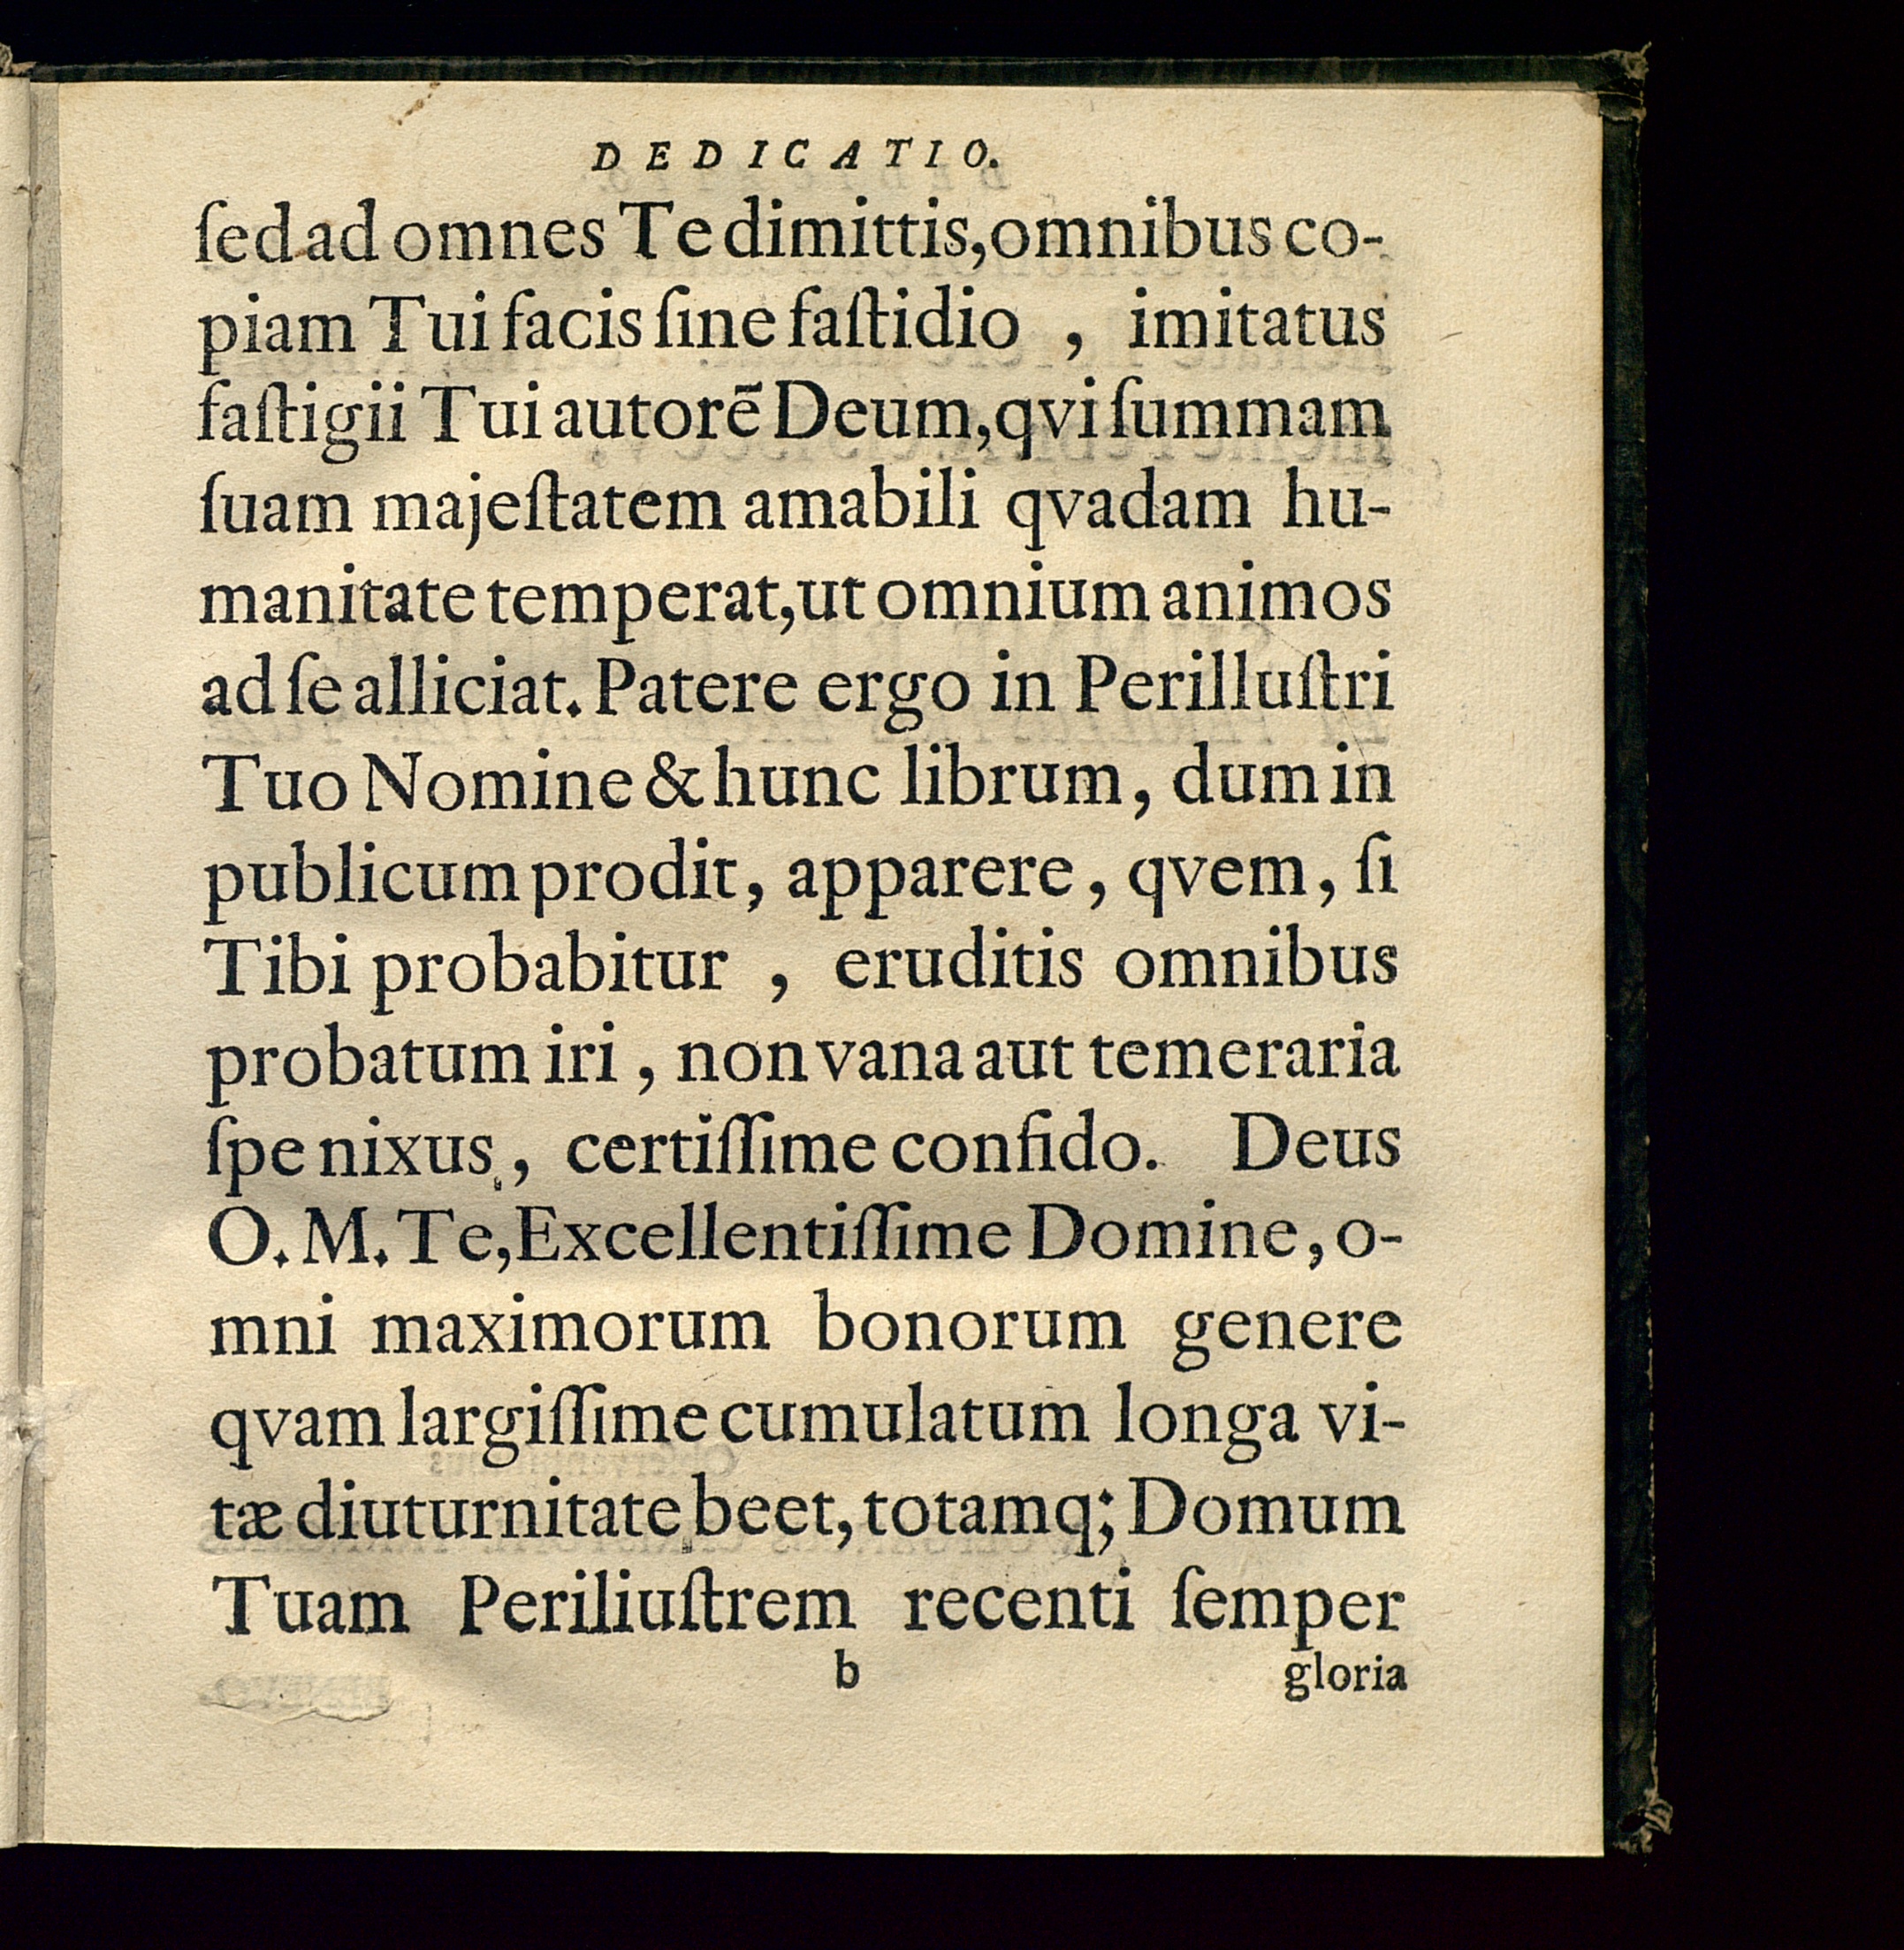 DEDICATIO.
ſed ad omnes Te dimittis, omnibus co-
piam Tui facis ſine faſtidio , imitatus
faſtigii Tui autorē Deum, qvi ſummam
ſuam majeſtatem amabili qvadam hu-
manitate temperat, ut omnium animos
ad ſe alliciat. Patere ergo in Perilluſtri
Tuo Nomine & hunc librum, dum in
publicum prodit, apparere, qvem, ſi
Tibi probabitur , eruditis omnibus
probatum iri, non vana aut temeraria
ſpe nixus, certiſſime confido. Deus
O. M. Te, Excellentiſſime Domine, o-
mni maximorum bonorum genere
qvam largiſſime cumulatum longa vi-
tæ diuturnitate beet, totamq; Domum
Tuam Periliuſtrem recenti ſemper
b gloria